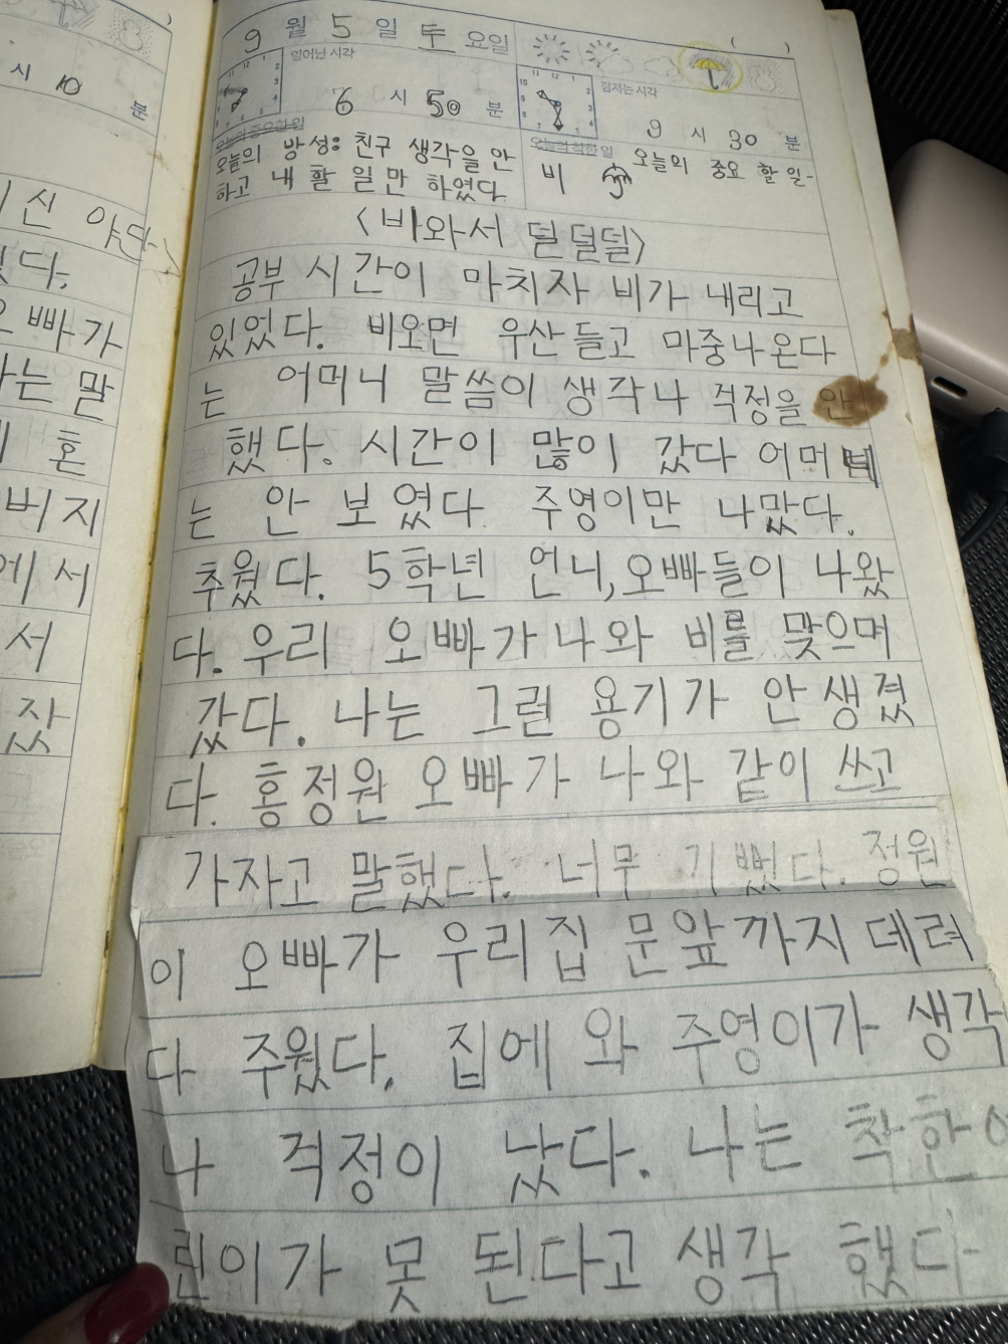 시 10 분
신 야단
다.
오빠가
는 말
혼
버지
에서
서
잤
9 월 5 일 토 요일
일어난 시각
6 시 50 분
잠자는 시각
9 시 30 분
오늘의 중요한 일
오늘의 방성: 친구 생각을 안
하고 내 할 일만 하였다
오늘의 착한 일
비 오늘의 중요 할 일-
<비와서 덜덜덜>
공부 시간이 마치자 비가 내리고
있었다. 비오면 우산들고 마중나온다
는 어머니 말씀이 생각나 걱정을 안
했다. 시간이 많이 갔다 어머니
는 안 보였다 주영이만 나맜다.
추웠다. 5학년 언니,오빠들이 나왔
다. 우리 오빠가 나와 비를 맞으며
갔다. 나는 그런 용기가 안 생겼
다. 홍정원 오빠가 나와 같이 쓰고
가자고 말했다. 너무 기뻤다. 정원
이 오빠가 우리집 문앞 까지 데려
다 주웠다. 집에 와 주영이가 생각
나 걱정이 났다. 나는 착한 어
린이가 못 된다고 생각 했다